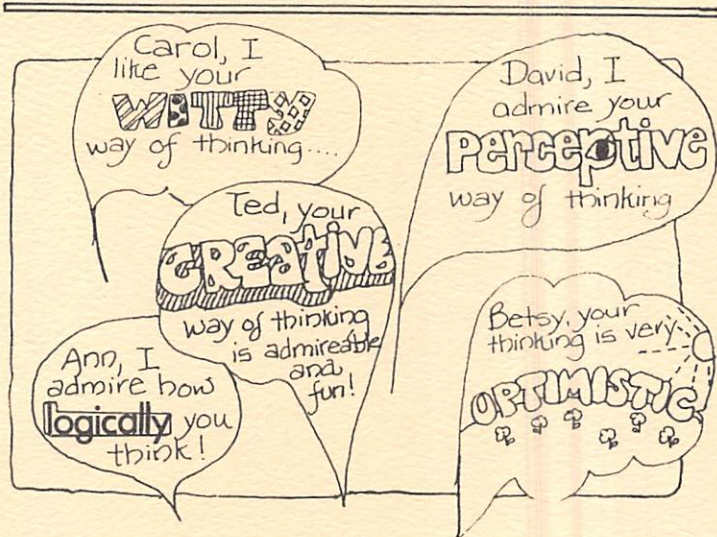 Carol, I
like your
WITTY
way of thinking....
David, I
admire your
Perceptive
way of thinking
Ted, your
CREATIVE
way of thinking
is admireable
and
fun!
Ann, I
admire how
logically you
think!
Betsy, your
thinking is very
OPTIMISTIC